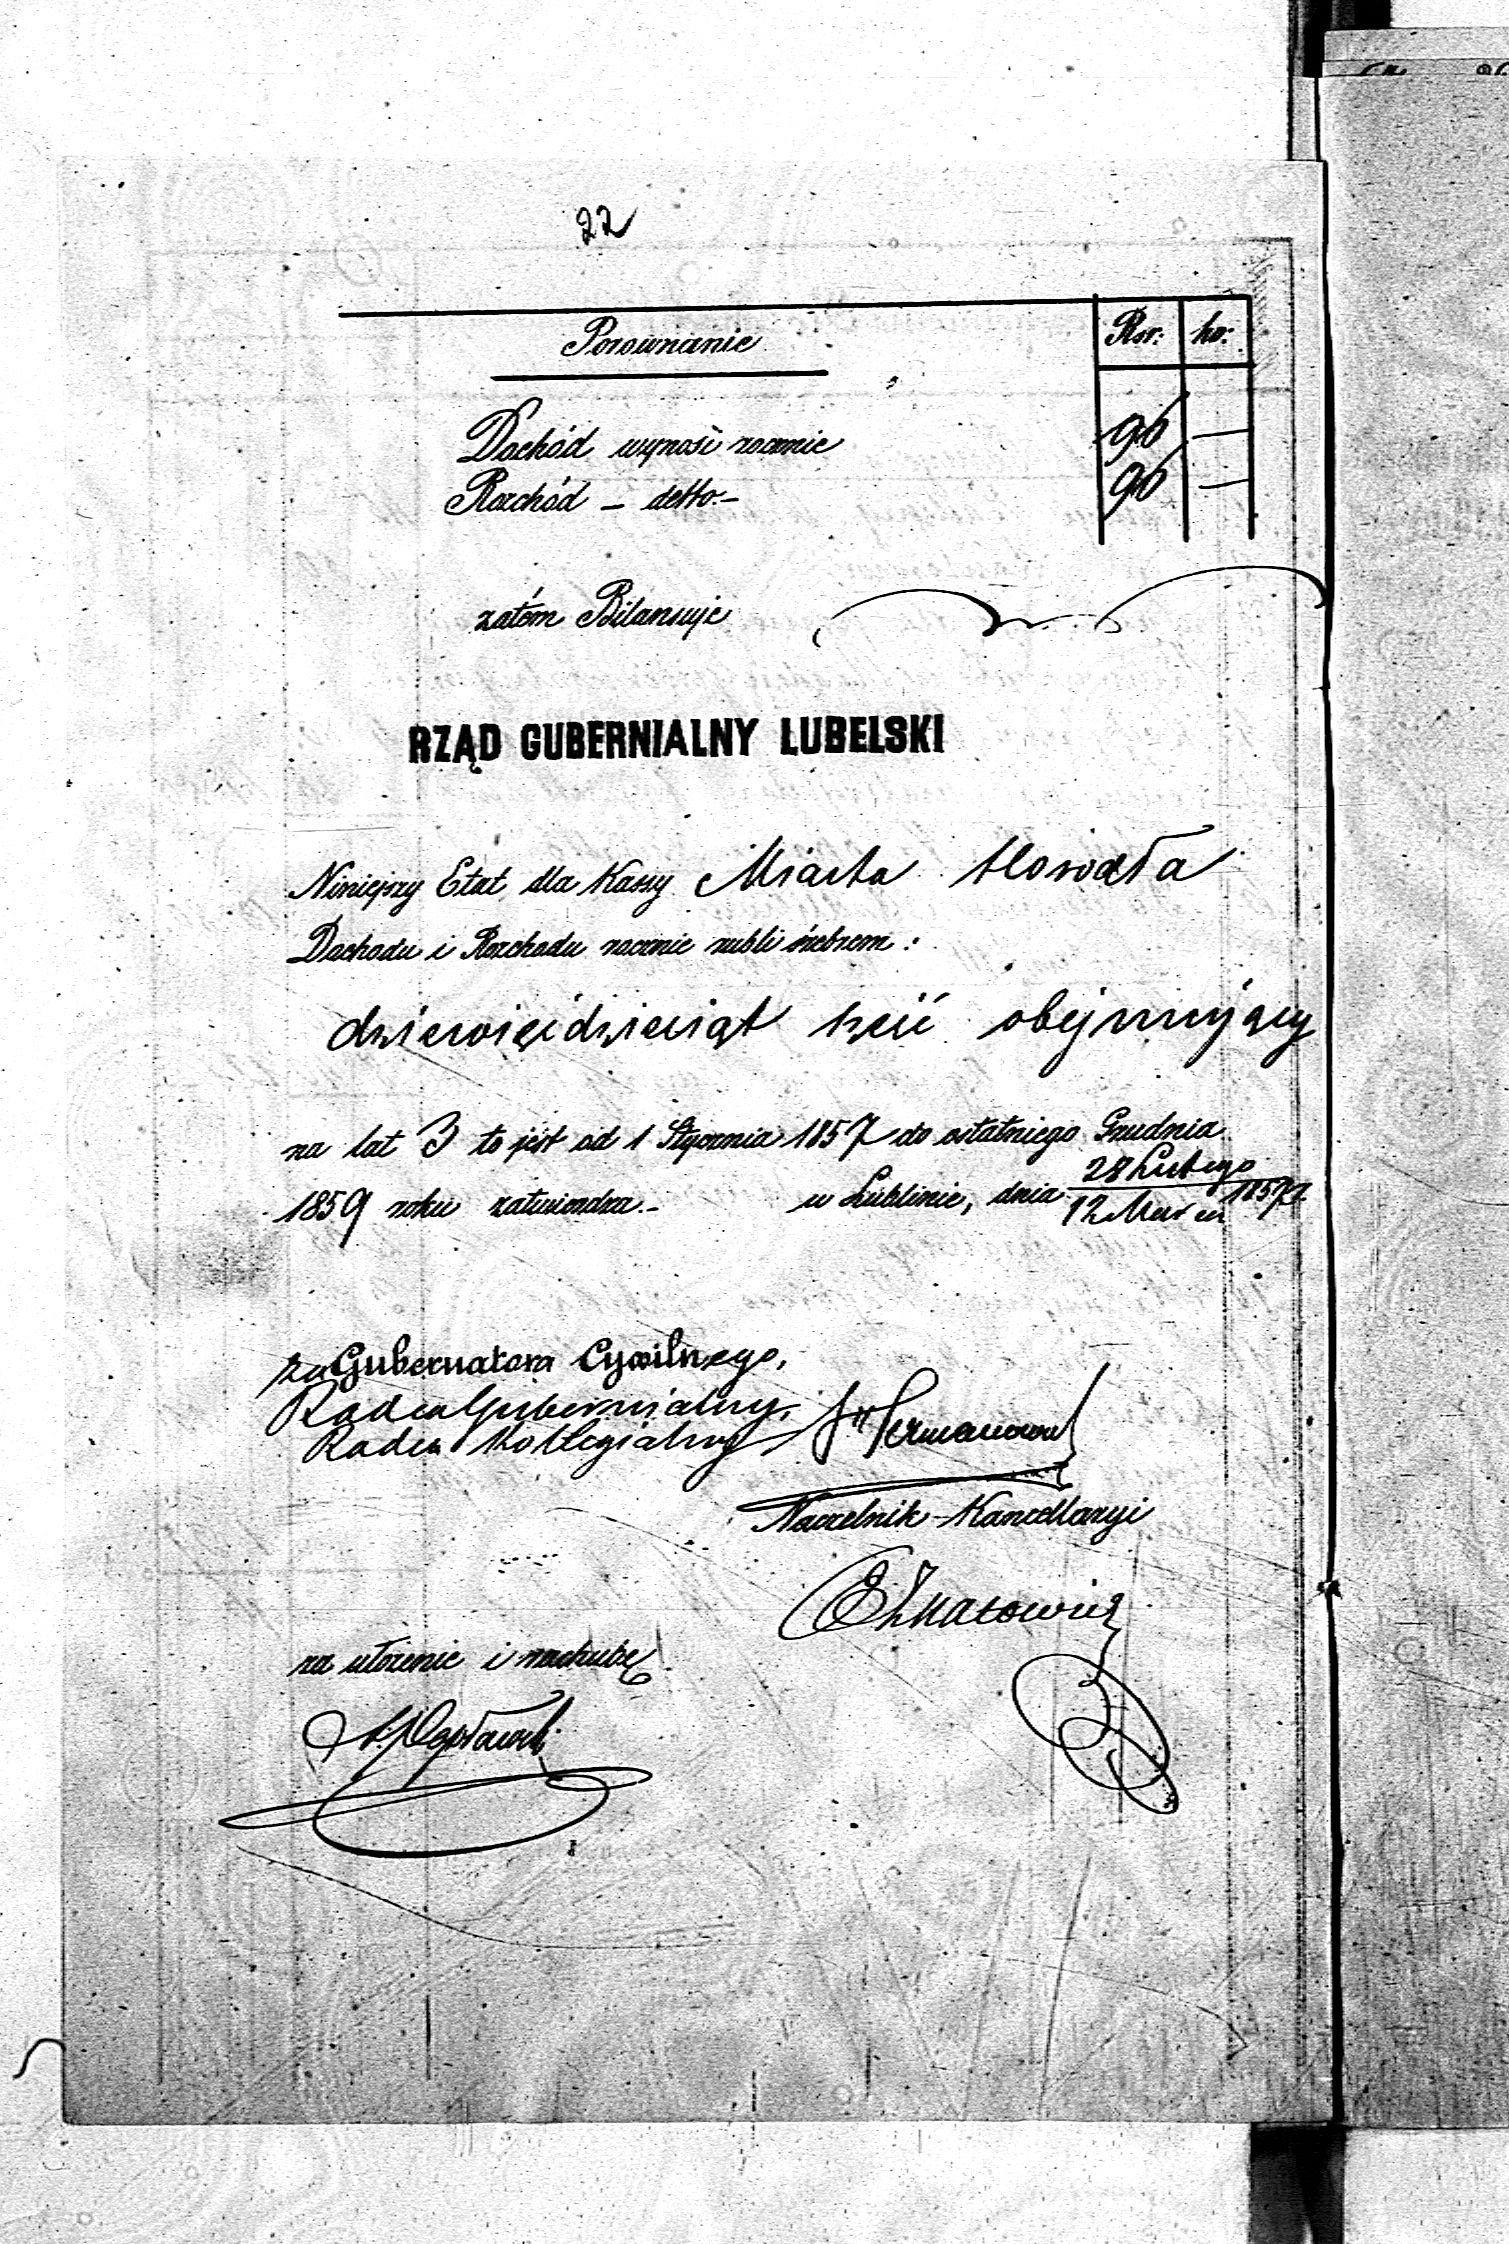 22
Porównanie Rsr: ko:
Dochód wynosi rocznie 96 —
Rozchód — detto.— 96 —
zatém Bilansuje
RZĄD GUBERNIALNY LUBELSKI
Niniejszy Etat dla Kassy Miasta Horodła
Dochodu i Rozchodu rocznie rubli śrebrem :
dziewięćdziesiąt sześć obejmujący
na lat 3 to jest od 1 Stycznia 1857 do ostatniego Grudnia
1859 roku zatwierdza.— w Lublinie, dnia 28 Lutego / 12 Marca 1857 r
za Gubernatora Cywilnego,
Radca Gubernialny,
Radca Kollegialny
Naczelnik Kancellaryi
za ułożenie i rachubę